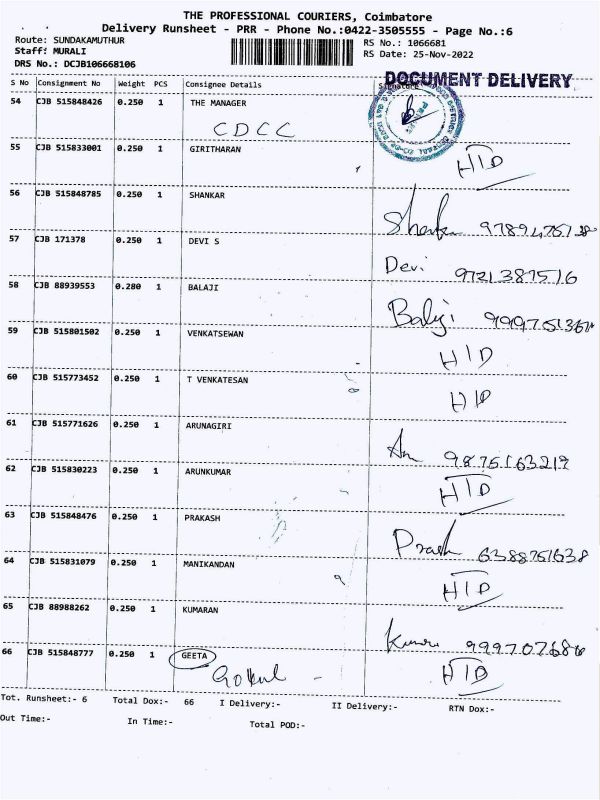 THE PROFESSIONAL COURIERS, Coimbatore
Delivery Runsheet - PRR - Phone No.:0422-3505555 - Page No.:6
Route: SUNDAKAMUTHUR RS No.: 1066681
Staff: MURALI RS Date: 25-Nov-2022
DRS No.: DCJB106668106
DOCUMENT DELIVERY
S No Consignment No Weight PCS Consignee Details Signature
54 CJB 515848426 0.250 1 THE MANAGER
CDCC
55 CJB 515833001 0.250 1 GIRITHARAN
HID
56 CJB 515848785 0.250 1 SHANKAR
57 CJB 171378 0.250 1 DEVI S
Devi 9721387516
58 CJB 88939553 0.280 1 BALAJI
Balaji
59 CJB 515801502 0.250 1 VENKATSEWAN
HID
60 CJB 515773452 0.250 1 T VENKATESAN
HID
61 CJB 515771626 0.250 1 ARUNAGIRI
9875163219
62 CJB 515830223 0.250 1 ARUNKUMAR
HID
63 CJB 515848476 0.250 1 PRAKASH
6388751638
64 CJB 515831079 0.250 1 MANIKANDAN
HID
65 CJB 88988262 0.250 1 KUMARAN
66 CJB 515848777 0.250 1 GEETA
Gokul - HID
Tot. Runsheet:- 6 Total Dox:- 66 I Delivery:- II Delivery:- RTN Dox:-
Out Time:- In Time:- Total POD:-